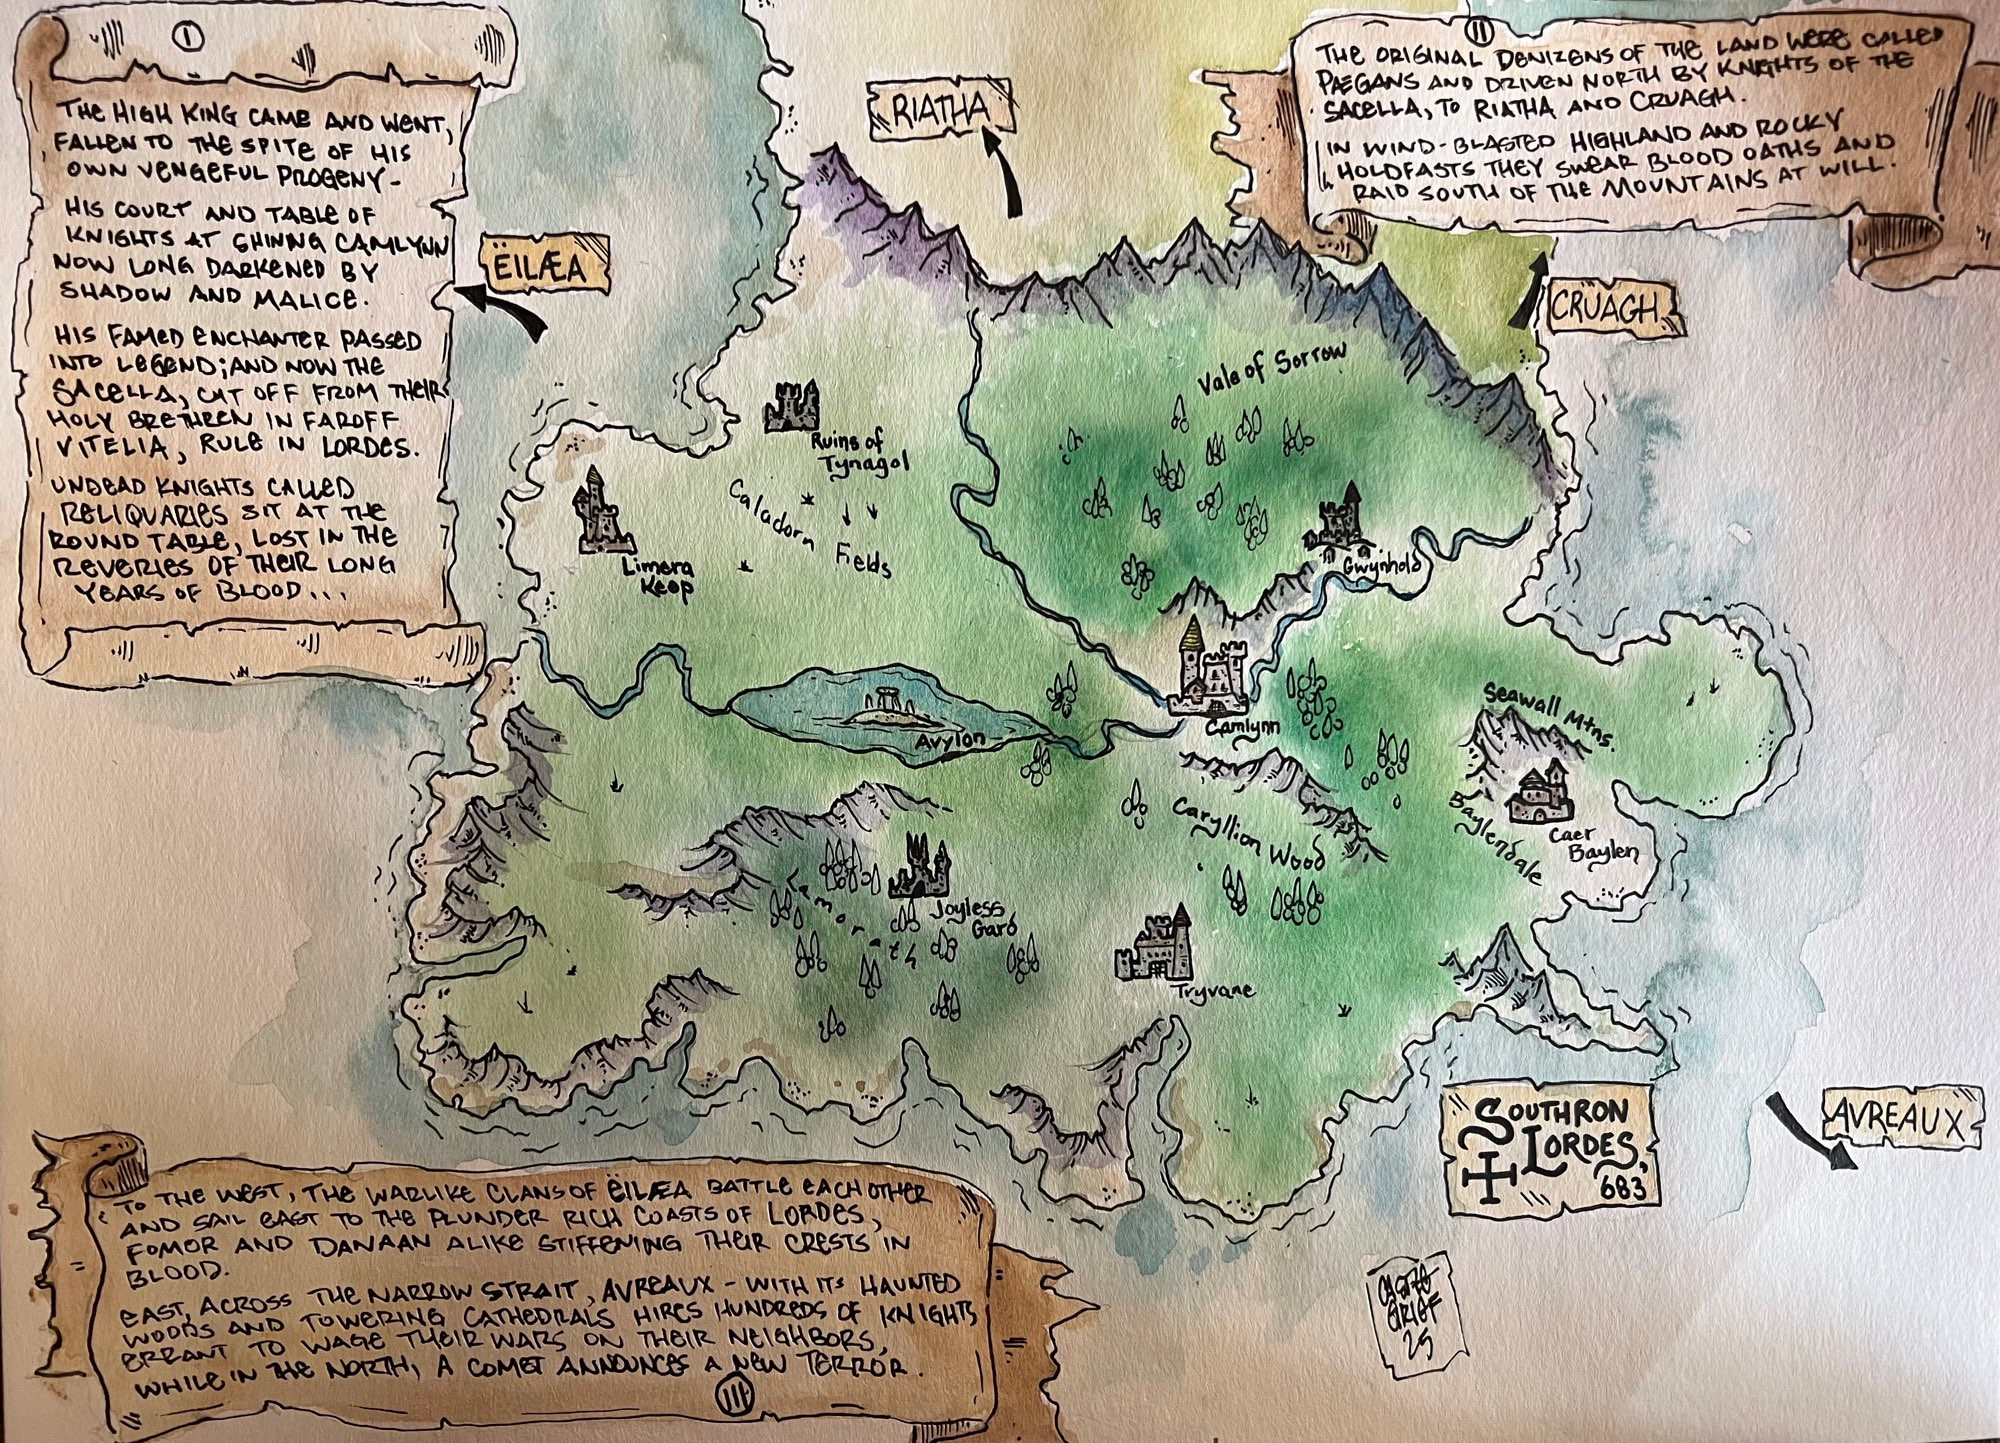 I
THE HIGH KING CAME AND WENT,
FALLEN TO THE SPITE OF HIS
OWN VENGEFUL PROGENY-
HIS COURT AND TABLE OF
KNIGHTS AT SHINING CAMLYNN
NOW LONG DARKENED BY
SHADOW AND MALICE.
HIS FAMED ENCHANTER PASSED
INTO LEGEND; AND NOW THE
SACELLA, CUT OFF FROM THEIR
HOLY BRETHREN IN FAROFF
VITELIA, RULE IN LORDES.
UNDEAD KNIGHTS CALLED
RELIQUARIES SIT AT THE
ROUND TABLE, LOST IN THE
REVERIES OF THEIR LONG
YEARS OF BLOOD...
II
THE ORIGINAL DENIZENS OF THE LAND WERE CALLED
PÆGANS AND DRIVEN NORTH BY KNIGHTS OF THE
SACELLA, TO RIATHA AND CRUAGH.
IN WIND-BLASTED HIGHLAND AND ROCKY
HOLDFASTS THEY SWEAR BLOOD OATHS AND
RAID SOUTH OF THE MOUNTAINS AT WILL.
RIATHA
ËILÆA
CRUAGH
Vale of Sorrow
Ruins of
Tynagol
Caladorn Fields
Limera
Keep
Gwynhold
Camlynn
Avylon
Seawall Mtns.
Baylendale
Caer
Baylen
Caryllion Wood
Joyless
Gard
Tryvane
SOUTHRON
LORDES,
683
AVREAUX
TO THE WEST, THE WARLIKE CLANS OF ËILÆA BATTLE EACH OTHER
AND SAIL EAST TO THE PLUNDER RICH COASTS OF LORDES,
FOMOR AND DANAAN ALIKE STIFFENING THEIR CRESTS IN
BLOOD.
EAST, ACROSS THE NARROW STRAIT, AVREAUX - WITH ITS HAUNTED
WOODS AND TOWERING CATHEDRALS HIRES HUNDREDS OF KNIGHTS
ERRANT TO WAGE THEIR WARS ON THEIR NEIGHBORS,
WHILE IN THE NORTH, A COMET ANNOUNCES A NEW TERROR.
III
GRIEF
25